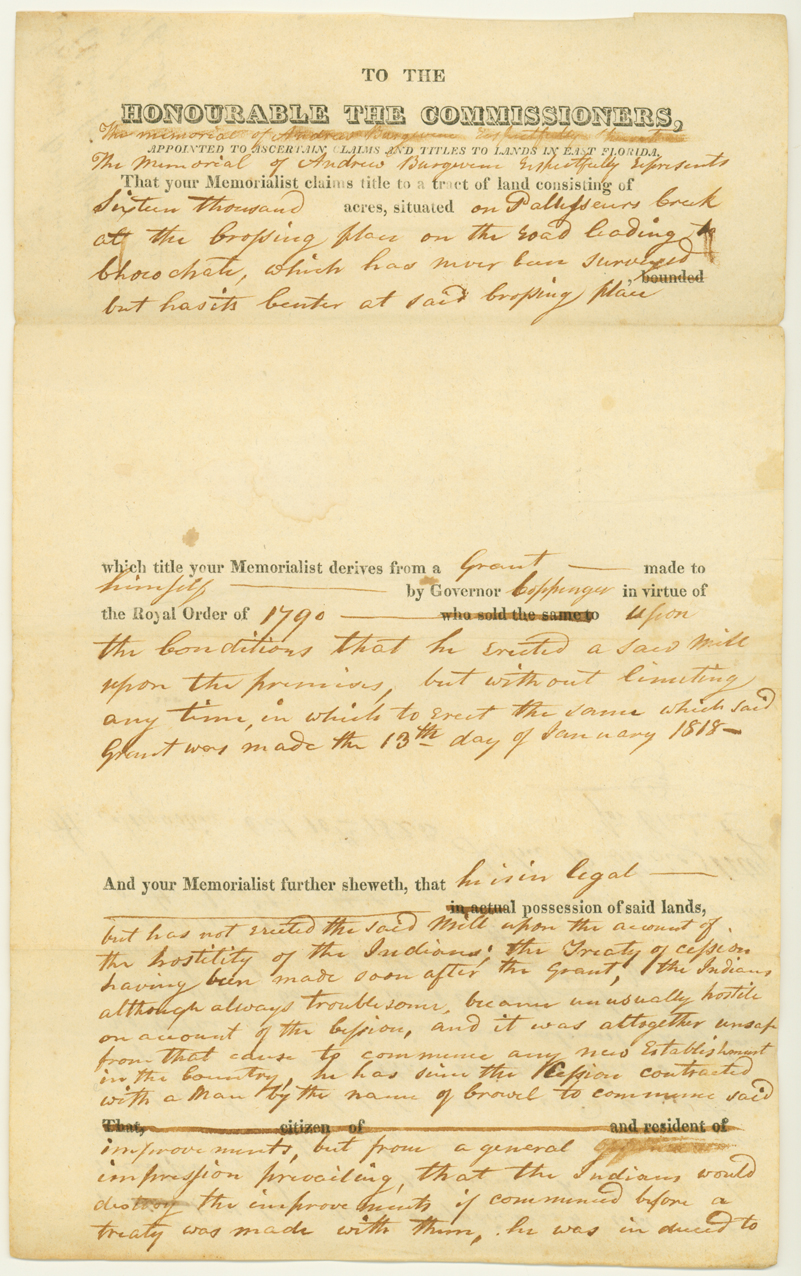 TO THE
HONOURABLE THE COMMISSIONERS,
The memorial of Andrew Burgevin Respectfully
APPOINTED TO ASCERTAIN CLAIMS AND TITLES TO LANDS IN EAST FLORIDA.
The Memorial of Andrew Burgevin Respectfully represents
That your Memorialist claims title to a tract of land consisting of
Sixteen thousand acres, situated on Creek
at the Crossing place on the road leading to
Chocochate, which has never been surveyed
, bounded
but has its Center at said Crossing place
which title your Memorialist derives from a Grant made to
himself by Governor Coppinger in virtue of
the Royal Order of 1790 who sold the same to upon
the Conditions that he Erected a Saw Mill
upon the premises, but without limiting
any time, in which to Erect the same which said
Grant was made the 13th day of January 1818—
And your Memorialist further sheweth, that he is in legal
in actual possession of said lands,
but has not Erected the said Mill upon the account of
the hostility of the Indians; the Treaty of cession
having been made soon after the Grant, the Indians
although always troublesome, became unusually hostile
on account of the Cession, and it was altogether unsafe
from that cause to commence any new Establishment
in the Country, he has since the Cession contracted
with a Man by the name of Crowel to commence said
That, citizen of and resident of
improvements, but from a general
impression prevailing, that the Indians would
destroy the improvements if commenced before a
treaty was made with them, he was induced to